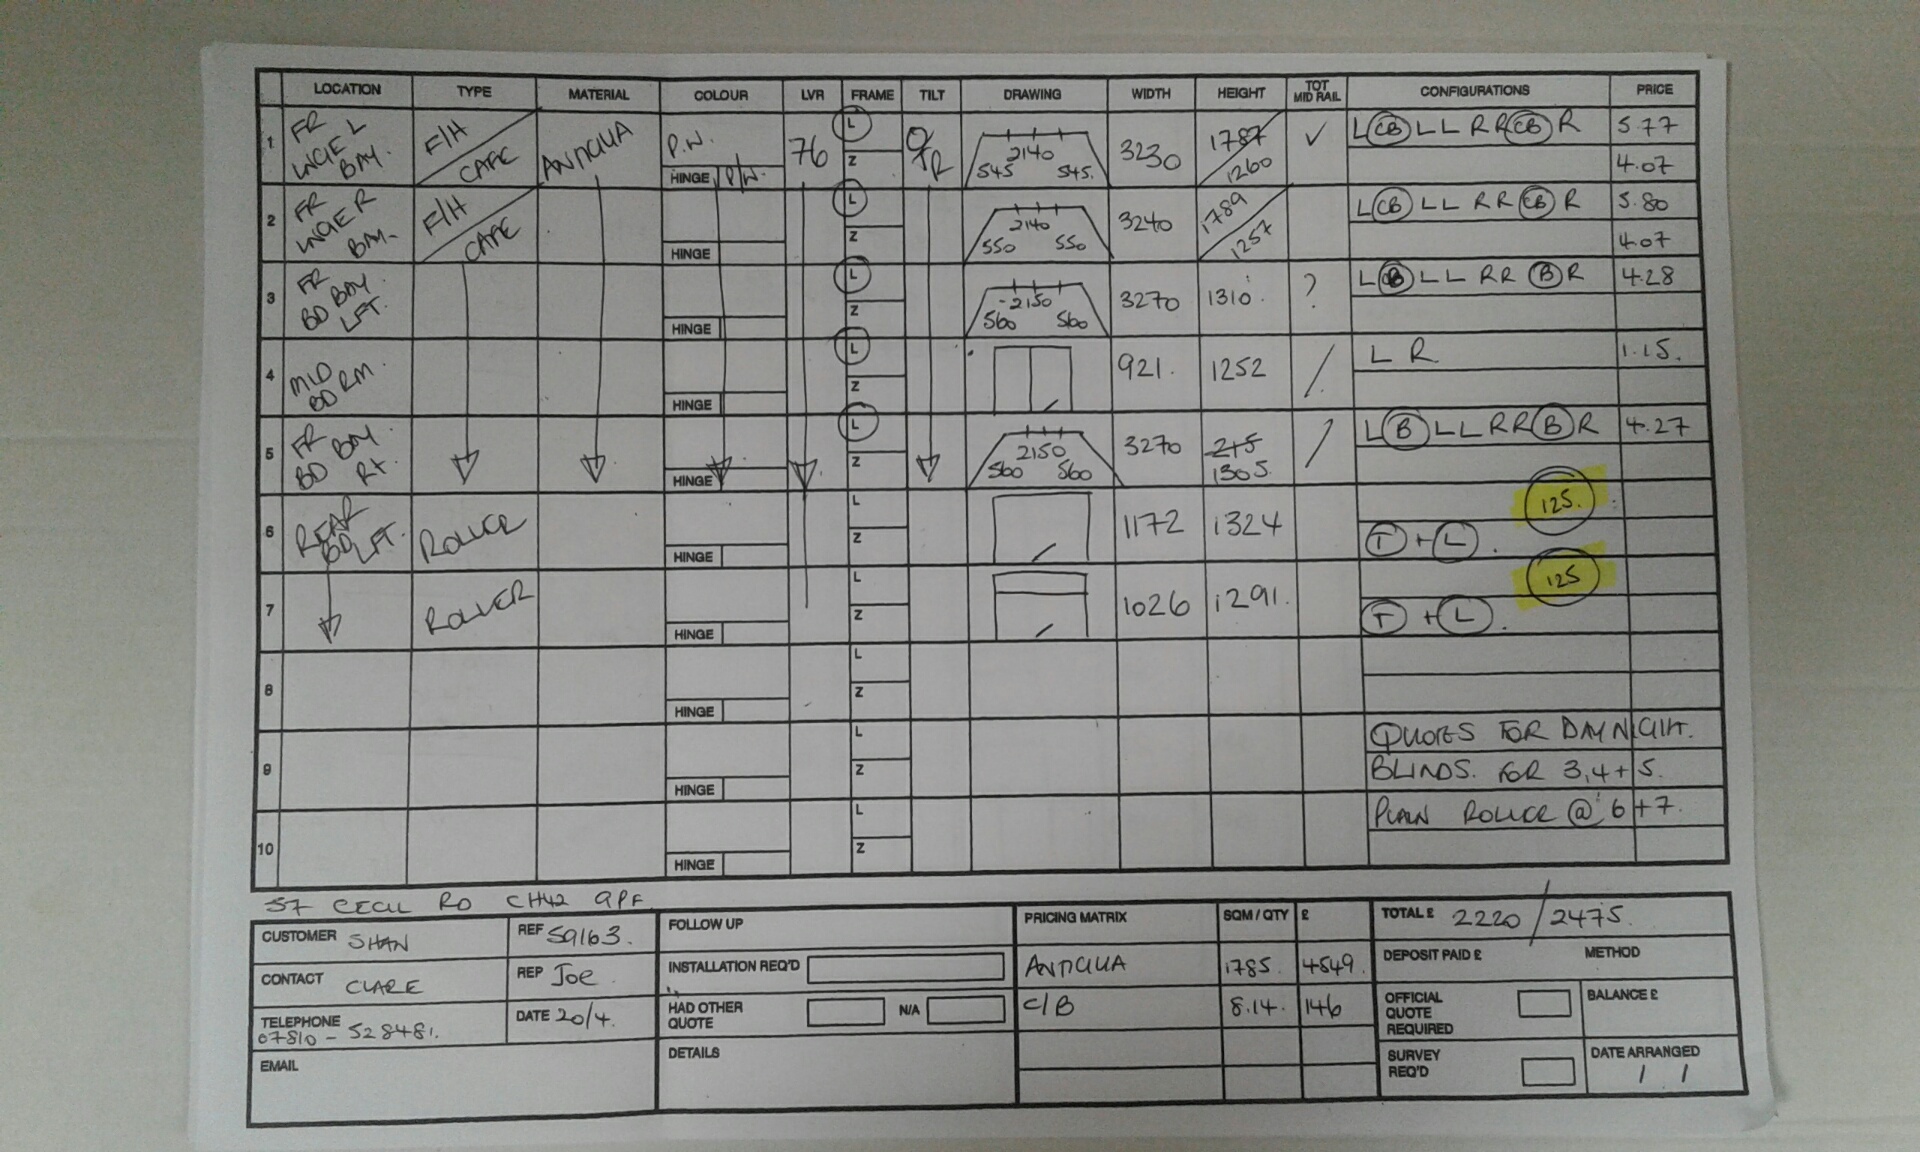 LOCATION TYPE MATERIAL COLOUR LVR FRAME TILT DRAWING WIDTH HEIGHT TOT MID RAIL CONFIGURATIONS PRICE
1 FR LNGE L BAY. F/H CAFE ANTIGUA P.W. HINGE P/W. 76 L Z 2140 545 545. 3230 1787 1260 ✓ L CB L L R R CB R 5.77
4.07
2 FR LNGE R BAY- F/H CAFE HINGE L Z 2140 550 550 3240 1789 1257 L CB L L R R CB R 5.80
4.07
3 FR BD BAY. LFT. HINGE L Z 2150 560 560 3270 1310. ? L B L L R R B R 4.28
4 MID BD RM. HINGE L Z 921. 1252 / L R 1.15.
5 FR BD BAY. RT. HINGE L Z 2150 560 560 3270 215 1305. / L B L L R R B R 4.27
6 REAR BD LFT. ROLLER HINGE L Z 1172 1324 125.
T + L.
7 ROLLER HINGE L Z 1026 1291. 125
T + L.
8 HINGE L Z
9 HINGE L Z QUOTES FOR DAYNIGHT.
BLINDS. FOR 3,4+5.
10 HINGE L Z PLAIN ROLLER @ 6+7.
57 CECIL RD CH42 9PF
CUSTOMER SHAN
REF 59163.
CONTACT CLARE
REP Joe
TELEPHONE 07810 - 528481.
DATE 20/4.
EMAIL
FOLLOW UP
INSTALLATION REQ'D
HAD OTHER QUOTE N/A
DETAILS
PRICING MATRIX SQM / QTY £
ANTIGUA 1785. 4549.
C/B 8.14. 146
TOTAL £ 2220 / 2475.
DEPOSIT PAID £ METHOD
OFFICIAL QUOTE REQUIRED
BALANCE £
SURVEY REQ'D
DATE ARRANGED
/ /